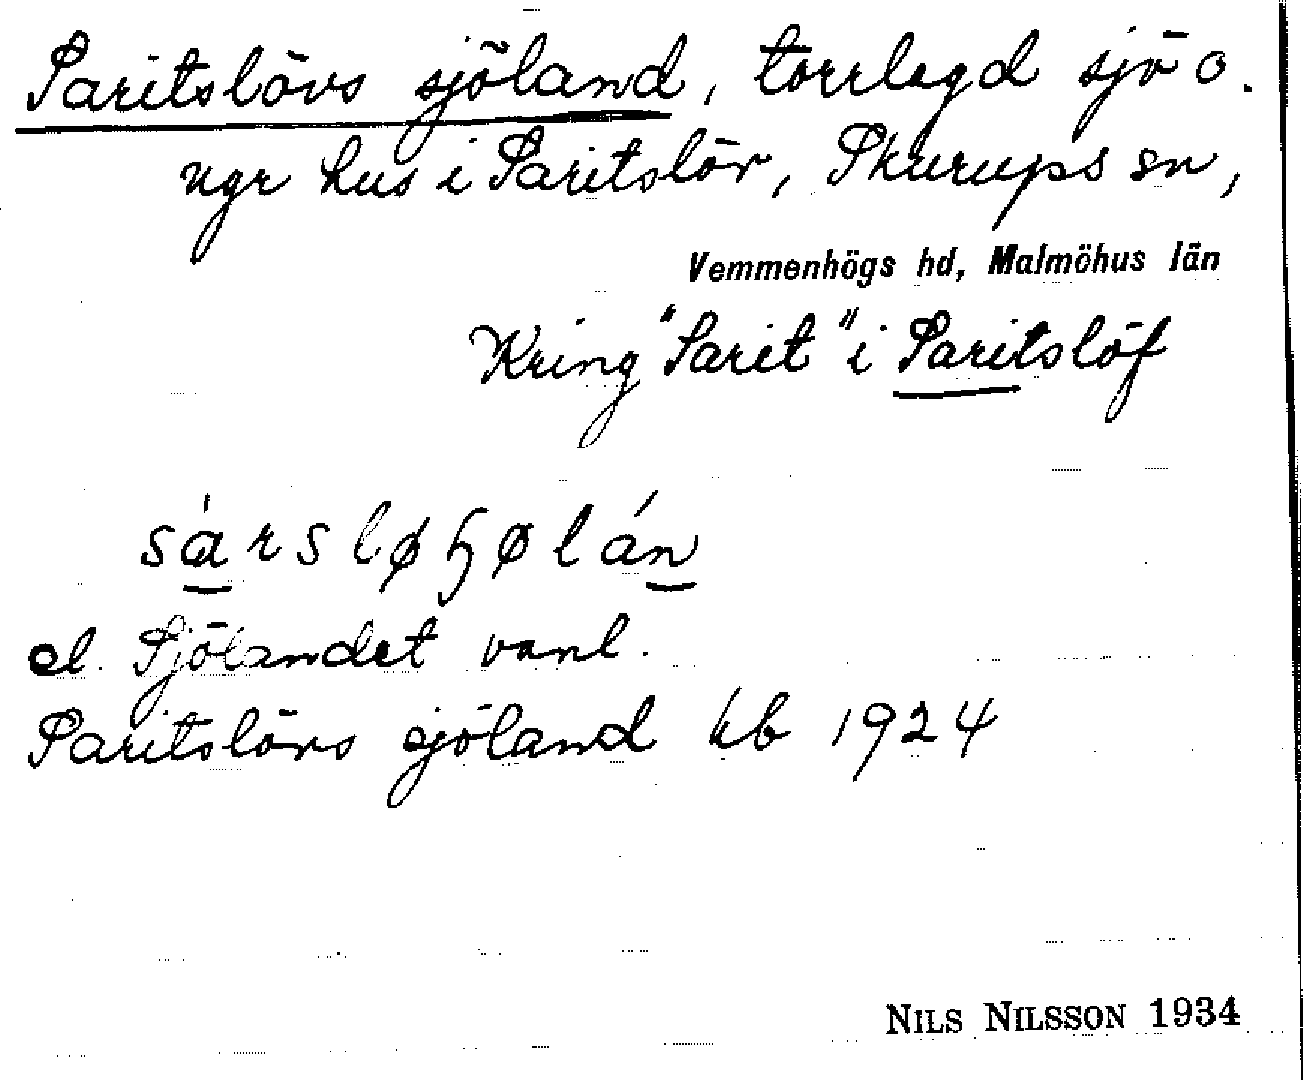 Saritslövs sjöland, torrlagd sjö o.
ngr hus i Saritslöv, Skurups sn,
Vemmenhögs hd, Malmöhus län
Kring "Sarit" i Saritslöf
el. Sjölandet vanl.
Saritslövs sjöland kb 1924
NILS NILSSON 1934